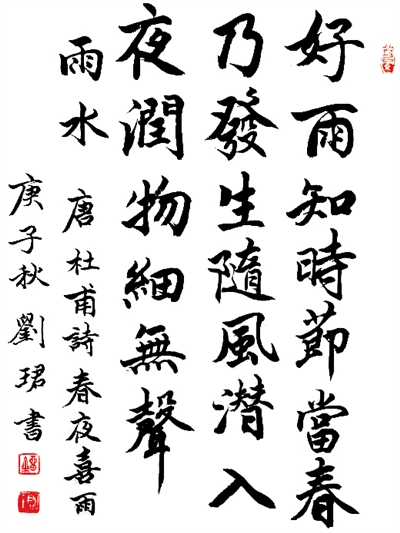 好雨知時節當春
乃發生隨風潜入
夜潤物細無聲
雨水
唐杜甫詩春夜喜雨
庚子秋劉珺書